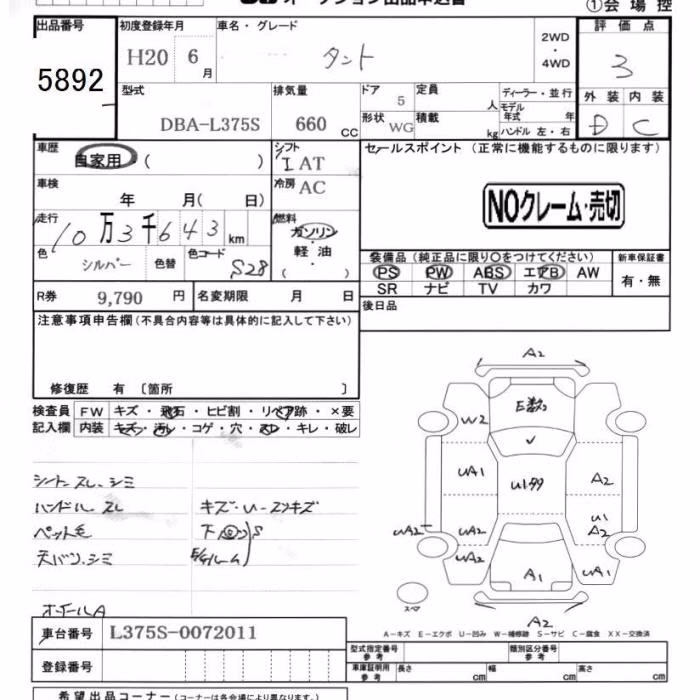 ①会 場 控
出品番号
5892
初度登録年月
H20 6 月
車名・グレード
タント
2WD
・
4WD
評 価 点
3
外 装 内 装
D C
型式
DBA-L375S
排気量
660 CC
ドア
5
形状 WG
定員
人
積載
kg
ディーラー・並行
モデル
年式 年
ハンドル 左・右
車歴
自家用 ( )
シフト
I AT
セールスポイント (正常に機能するものに限ります)
車検
年 月( 日)
冷房 AC
NOクレーム・売切
走行
10 万 3 千 6 4 3 km
燃料
ガソリン
・
軽 油
( )
色
シルバー
色替
色コード
S28
装備品 (純正品に限り〇をつけてください)
新車保証書
PS PW ABS エアB AW
有・無
SR ナビ TV カワ
R券 9,790 円
名変期限 月 日
後日品
注意事項申告欄 (不具合内容等は具体的に記入して下さい)
修復歴 有 〔箇所 〕
検査員 FW キズ・飛石・ヒビ割・リペア跡・×要
記入欄 内装 キズ・汚レ・コゲ・穴・スレ・キレ・破レ
シートスレ.シミ
ハンドルスレ
キズ・U-スリキズ
ペット毛
天バリ.シミ
ホイールA
車台番号 L375S-0072011
登録番号
A2
E数2
W2
✓
UA1
U1タタ
A2
UA2
UA2
U1
A2
UA2
A1
UA1
スペア
A2
A－キズ E－エクボ U－凹み W－補修跡 S－サビ C－腐食 XX－交換済
型式指定番号
参考
類別区分番号
参考
車庫証明用
参考
長さ cm 幅 cm 高さ cm
希望出品コーナー (コーナーは各会場により異なります。)